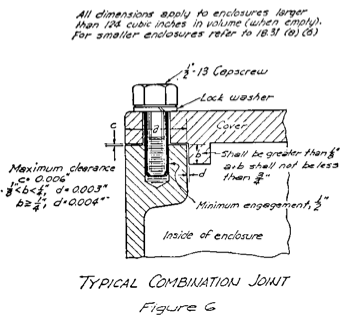 All dimensions apply to enclosures larger
than 124 cubic inches in volume (when empty).
For smaller enclosures refer to 18.31 (a) (6)
1/2"-13 Capscrew
Lock washer
c
a
Cover
b
Shall be greater than 1/8"
a+b shall not be less
than 3/4"
d
Maximum clearance
c= 0.006"
1/8"<b<1/4", d=0.003"
b≥1/4", d=0.004"
Minimum engagement, 1/2"
Inside of enclosure
TYPICAL COMBINATION JOINT
Figure 6